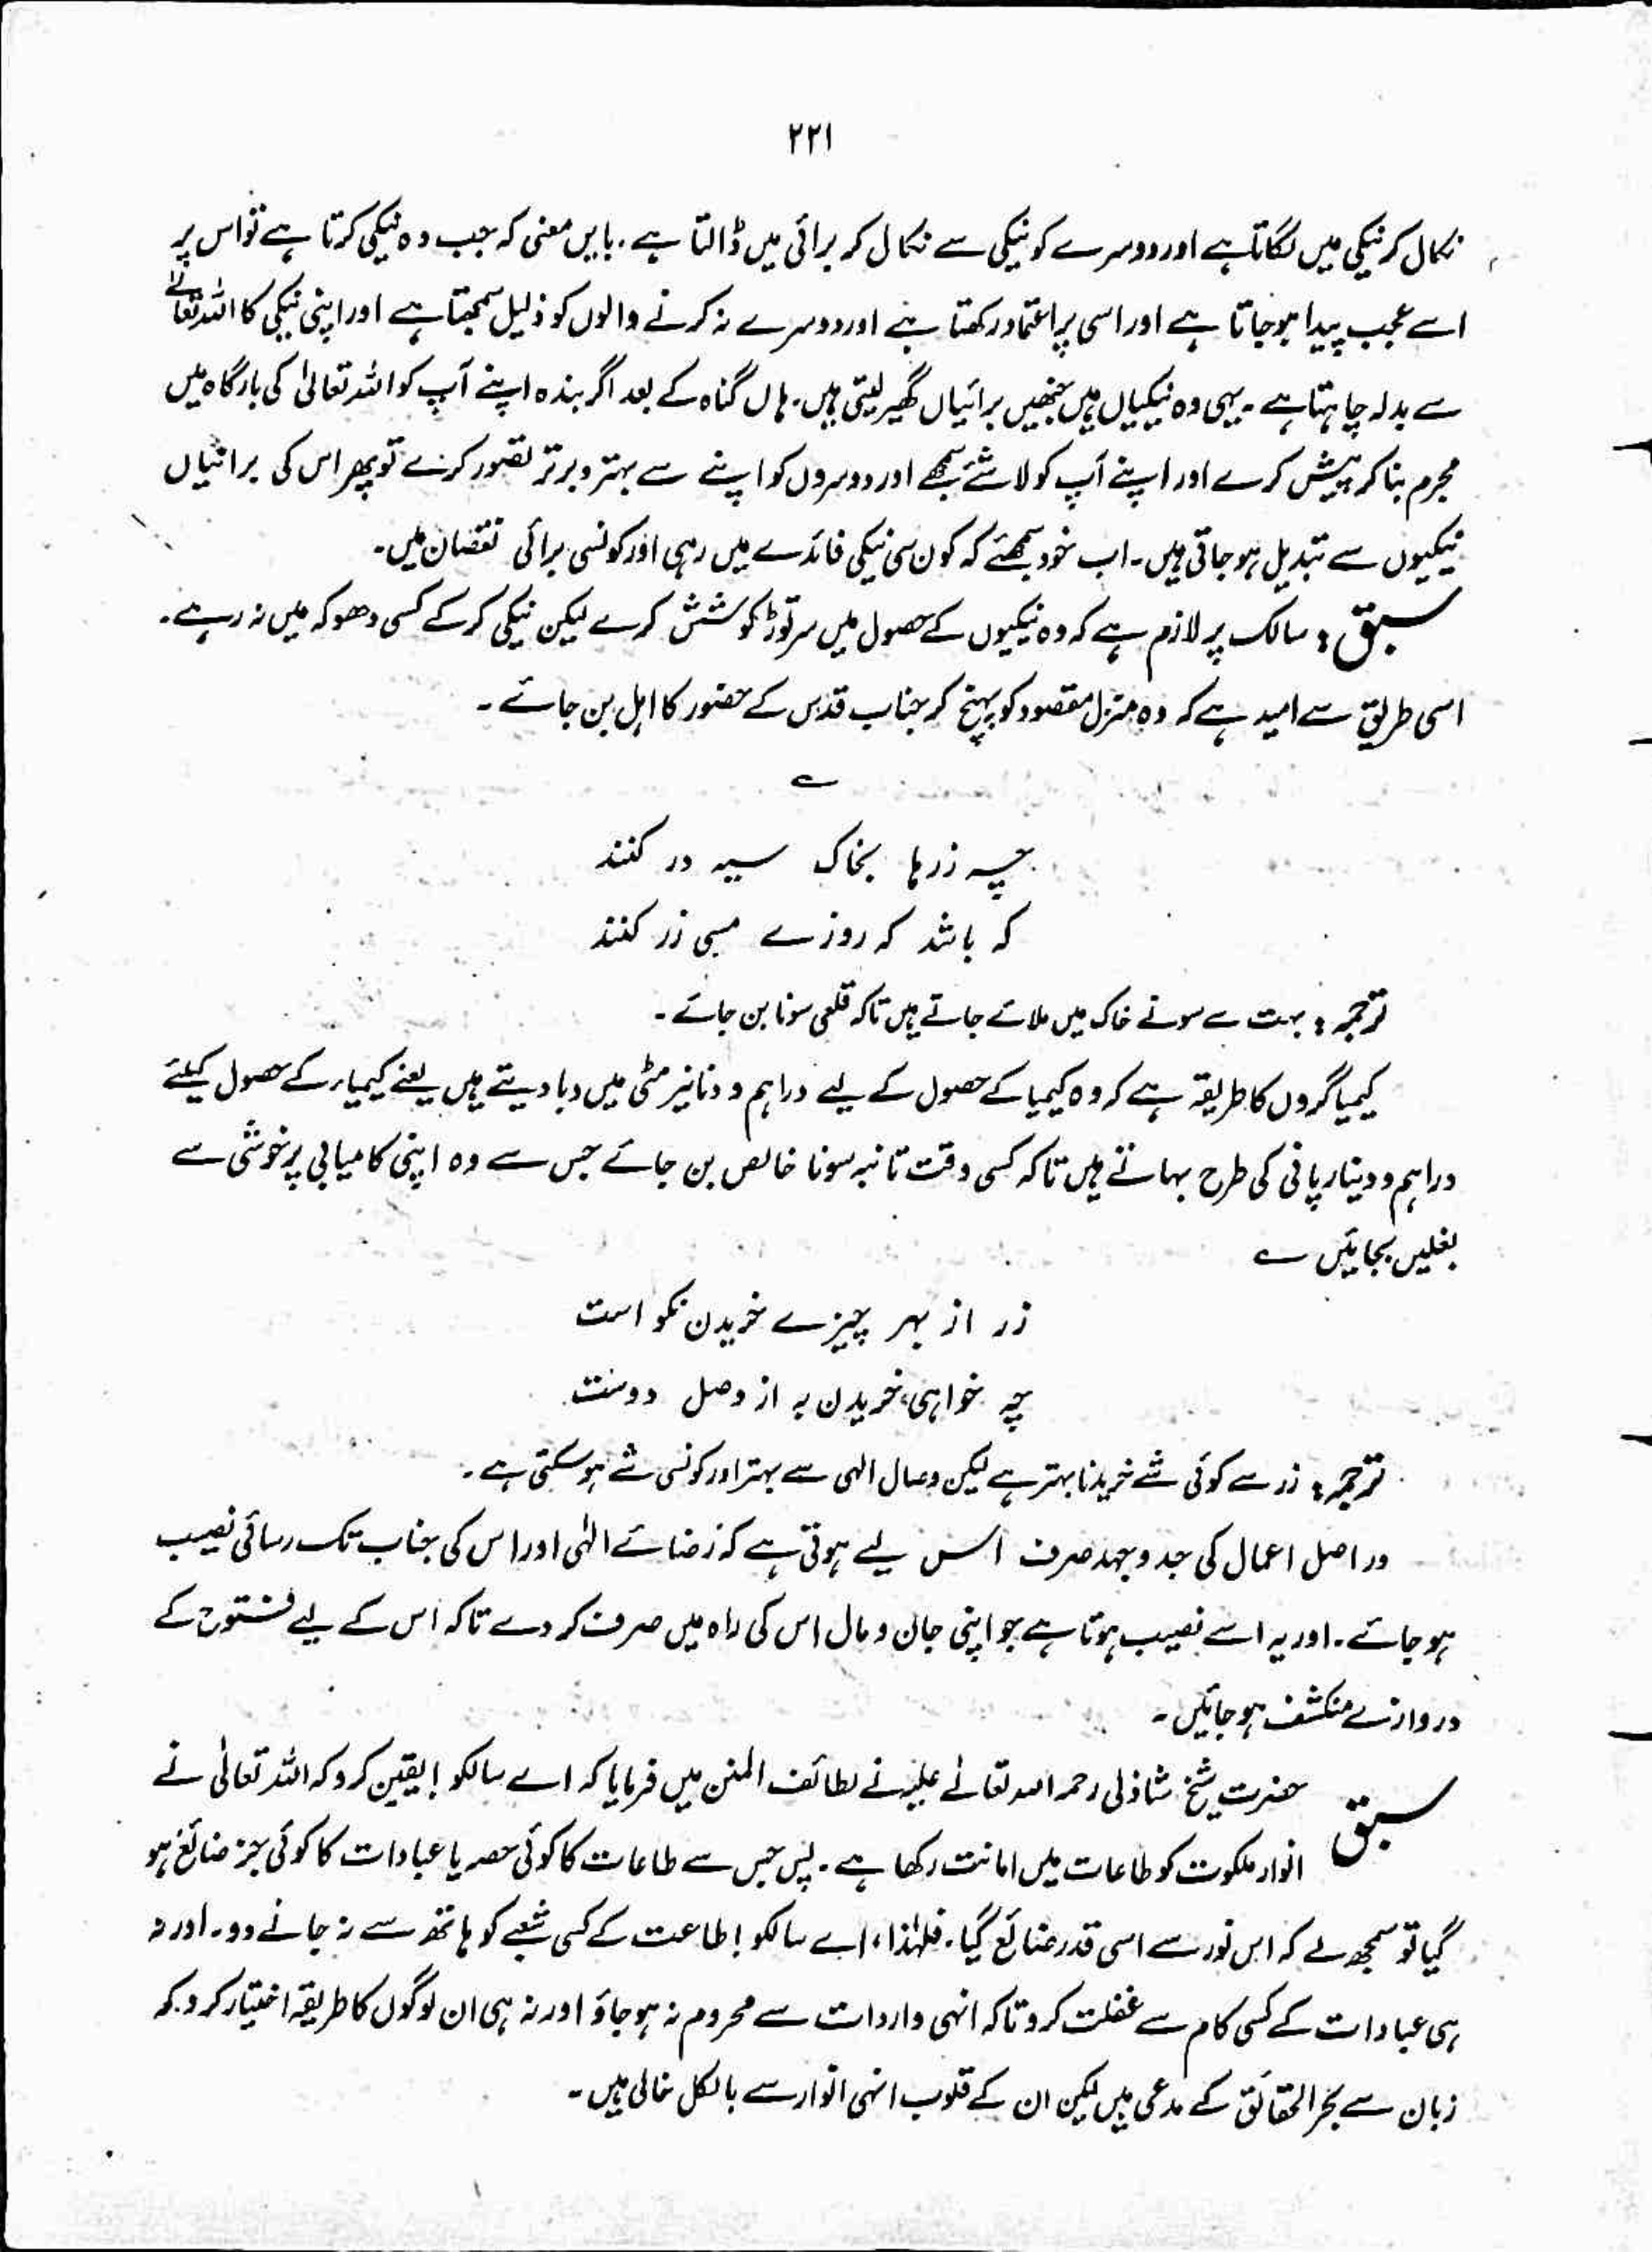 ۲۲۱
نکال کر نیکی میں لگاتا ہے اور دوسرے کو نیکی سے نکال کر برائی میں ڈالتا ہے۔ بایں معنی کہ جب وہ نیکی کرتا ہے تو اس پر
اسے عجب پیدا ہو جاتا ہے اور اسی پر اعتماد رکھتا ہے اور دوسرے نہ کرنے والوں کو ذلیل سمجھتا ہے اور اپنی نیکی کا اللہ تعالےٰ
سے بدلہ چاہتا ہے۔ یہی وہ نیکیاں ہیں جنھیں برائیاں گھیر لیتی ہیں۔ ہاں گناہ کے بعد اگر بندہ اپنے آپ کو اللہ تعالیٰ کی بارگاہ میں
مجرم بنا کر پیش کرے اور اپنے آپ کو لاشئے سمجھے اور دوسروں کو اپنے سے بہتر و برتر تصور کرے تو پھر اس کی برائیاں
نیکیوں سے تبدیل ہو جاتی ہیں۔ اب خود سمجھئے کہ کون سی نیکی فائدے میں رہی اور کونسی برائی نقصان میں۔
سبق: سالک پر لازم ہے کہ وہ نیکیوں کے حصول میں سر توڑ کوشش کرے لیکن نیکی کر کے کسی دھوکہ میں نہ رہے۔
اسی طریق سے امید ہے کہ وہ منزل مقصود کو پہنچ کر جناب قدس کے حضور کا اہل بن جائے۔
؎
چہ زرہا بخاک سیہ در کنند
کہ باشد کہ روزے مسی زر کنند
ترجمہ: بہت سے سونے خاک میں ملائے جاتے ہیں تاکہ قلعی سونا بن جائے۔
کیمیا گروں کا طریقہ ہے کہ وہ کیمیا کے حصول کے لیے دراہم و دنانیر مٹی میں دبا دیتے ہیں یعنے کیمیاء کے حصول کیلئے
دراہم و دینار پانی کی طرح بہاتے ہیں تاکہ کسی وقت تانبہ سونا خالص بن جائے جس سے وہ اپنی کامیابی پر خوشی سے
بغلیں بجائیں ؎
زر از بہر چیزے خریدن نکو است
چہ خواہی خریدن بہ از وصل دوست
ترجمہ: زر سے کوئی شے خریدنا بہتر ہے لیکن وصال الٰہی سے بہتر اور کونسی شے ہو سکتی ہے۔
در اصل اعمال کی جد و جہد صرف اس لیے ہوتی ہے کہ رضائے الٰہی اور اس کی جناب تک رسائی نصیب
ہو جائے۔ اور یہ اسے نصیب ہوتا ہے جو اپنی جان و مال اس کی راہ میں صرف کر دے تاکہ اس کے لیے فتوح کے
دروازے منکشف ہو جائیں۔
سبق حضرت شیخ شاذلی رحمہ اللہ تعالےٰ علیہ نے لطائف المنن میں فرمایا کہ اے سالکو! یقین کرو کہ اللہ تعالیٰ نے
انوار ملکوت کو طاعات میں امانت رکھا ہے۔ پس جس سے طاعات کا کوئی حصہ یا عبادات کا کوئی جز ضائع ہو
گیا تو سمجھ لے کہ اس نور سے اسی قدر ضائع گیا۔ فلہٰذا، اے سالکو! طاعت کے کسی شعبے کو ہاتھ سے نہ جانے دو۔ اور نہ
ہی عبادات کے کسی کام سے غفلت کرو تاکہ انہی واردات سے محروم نہ ہو جاؤ اور نہ ہی ان لوگوں کا طریقہ اختیار کرو کہ
زبان سے بحر الحقائق کے مدعی ہیں لیکن ان کے قلوب انہی انوار سے بالکل خالی ہیں۔